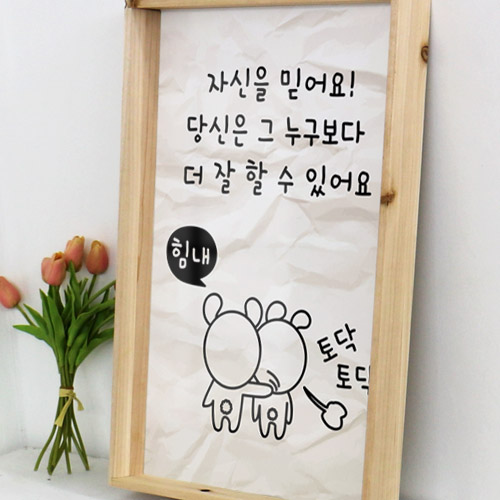 자신을 믿어요!
당신은 그 누구보다
더 잘 할 수 있어요
힘내
토닥
토닥